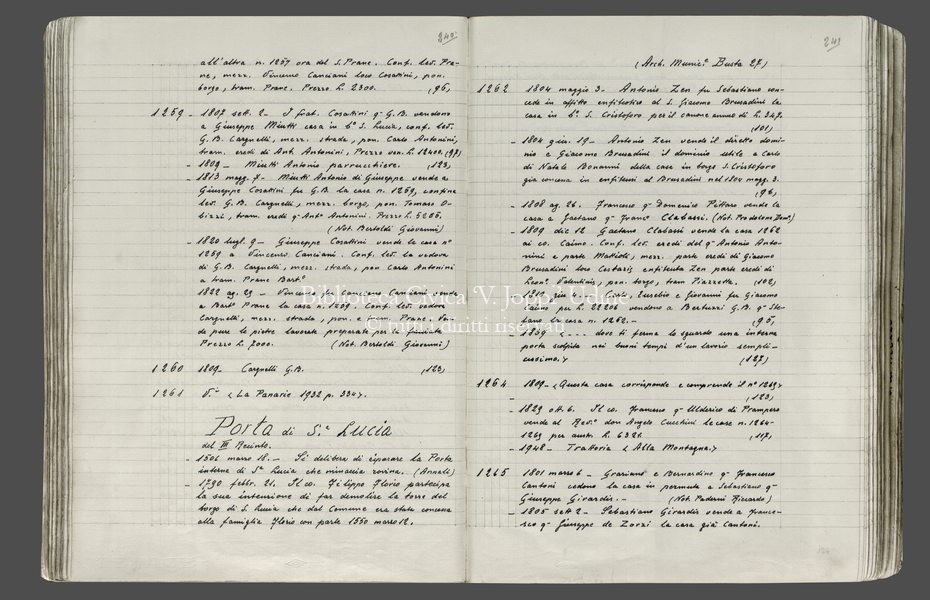 240
all'altra n. 1257 ora del S. Pranc. Conf. lev. Pra-
ne, mezz. Vincenzo Canciani loco Cosattini, pon.
borgo, tram. Pranc. Prezzo L. 2300. (96)
1259 - 1807 sett. 2 - I frat. Cosattini qm G.B. vendono
a Giuseppe Miutti casa in bo S. Lucia, conf. lev.
G.B. Cargnelli, mezz. strada, pon. Carlo Antonini,
tram. eredi di Ant. Antonini, Prezzo ven. L. 12400. (97)
- 1809 - Miutti Antonio parrucchiere. (123)
- 1813 magg. 7 - Miutti Antonio di Giuseppe vende a
Giuseppe Cosattini fu G.B. la casa n. 1259, confina
lev. G.B. Cargnelli, mezz. borgo, pon. Tomaso O-
bizzi, tram. eredi qm Anto Antonini. Prezzo L. 5205.
(Not. Bertoldi Giovanni)
- 1820 lugl. 9 - Giuseppe Cosattini vende la casa no
1259 a Vincenzo Canciani. Conf. lev. la vedova
di G.B. Cargnelli, mezz. strada, pon Carlo Antonini
a tram. Prane Barto
1822 ag. 29 - Vincenzo fu Canciano Canciani vende
a Barto Prane la casa n. 1259. Conf. lev. vedova
Cargnelli, mezz. strada, pon. e tram. Prane. Ven-
de pure le pietre lavorate preparate per la
Prezzo L. 7000. (Not. Bertoldi Giovanni)
1260 1809 - Cargnelli G.B. (123)
1261 V.i « La Panarie 1932 p. 334 ».
Porta di S.a Lucia
del III Recinto.
- 1506 marzo 18. - Si delibera di riparare la Porta
interna di Sa Lucia che minaccia rovina. (Annali)
- 1790 febbr. 21. Il co. Filippo Florio partecipa
la sua intenzione di far demolire la torre del
borgo di S. Lucia che dal Comune era stata concessa
alla famiglia Florio con parte 1550 marzo 12.
241
(Arch. Munic.o Busta 27)
1262 1804 maggio 3 - Antonio Zen fu Sebastiano con-
cede in affitto enfiteotico al S. Giacomo Brusadini la
casa in bo S. Cristoforo per il canone annuo di L. 347.
(101)
- 1804 giu. 19 - Antonio Zen vende il diretto domi-
nio e Giacomo Brusadini il dominio utile a Carlo
di Natale Bonanni della casa in borgo S. Cristoforo
già concessa in enfiteusi al Brusadini nel 1804 magg. 3.
(96)
- 1808 ag. 26. Francesco qm Domenico Pittaro vende la
casa a Gaetano qm Franco Clabassi. (Not. Prodolone Domo)
- 1809 dic 12 Gaetano Clabassi vende la casa 1262
ai co. Caimo. Conf. lev. eredi del qm Antonio Anto-
nini e parte Mattioli, mezz. parte eredi di Giacomo
Brusadini loro Costazis enfiteuta Zen parte eredi di
Leono Valentinis, pon. borgo, tram Piazzetta. (102)
Eusebio e Giovanni fu Giacomo
Caimo per L. 22206 vendono a Bertuzzi G.B. qm Ste-
fano la casa n. 1262. - (95)
- 1839 « --- dove ti ferma lo sguardo una interna
porta scolpita nei buoni tempi d'un lavoro sempli-
cissimo. » (127)
1264 1809 - « Questa casa corrisponde e comprende il no 1269 »
- (123)
- 1829 ott. 6. Il co. Francesco qm Ulderico di Prampero
vende al Rev.o don Angelo Cucchini le case n. 1264-
1269 per austr. L. 6321. (117)
- 1948 - Trattoria « Alla Montagna »
1265 1801 marzo 6 - Graziano e Bernardino qm Francesco
Cantoni cedono la casa in permuta a Sebastiano qm
Giuseppe Girardis. - (Not. Paderni Riccardo)
- 1805 sett 2 - Sebastiano Girardis vende a France-
sco qm Giuseppe de Zorzi la casa già Cantoni.
Biblioteca Civica "V. Joppi" Udine
© tutti i diritti riservati